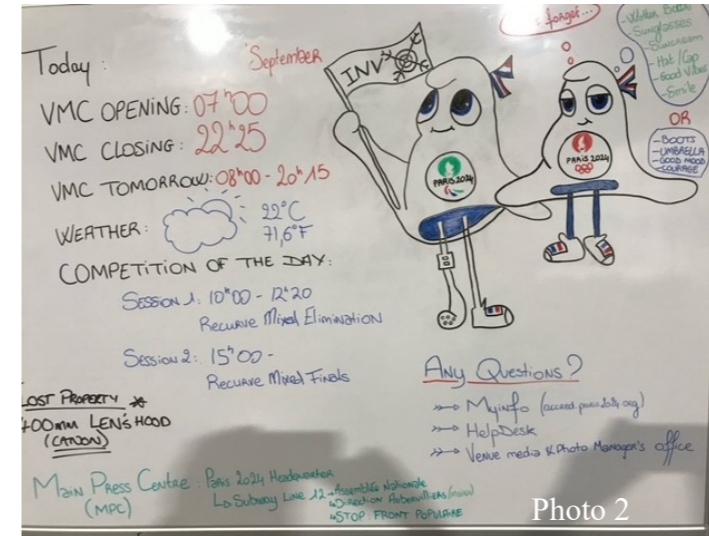 Today:
September
VMC OPENING: 07h00
VMC CLOSING: 22h25
VMC TOMORROW: 08h00 - 20h15
WEATHER:
22°C
71,6°F
COMPETITION OF THE DAY:
SESSION 1: 10h00 - 12h20
RECURVE MIXED ELIMINATION
SESSION 2: 15h00 -
RECURVE MIXED FINALS
LOST PROPERTY
400mm LEN'S HOOD
(CANON)
MAIN PRESS CENTRE: PARIS 2024 HEADQUARTER
(MPC)
SUBWAY LINE 12 → ASSEMBLÉE NATIONALE
DIRECTION AUBERVILLIERS (mairie)
STOP: FRONT POPULAIRE
INV
PARIS 2024
PARIS 2024
forget...
- Sunglasses
- Suncream
- Hat/Cap
- Good Vibes
- Smile
OR
- BOOTS
- UMBRELLA
- GOOD MOOD
- COURAGE
ANY QUESTIONS?
Myinfo (accred.paris2024.org)
HelpDesk
Venue media & Photo Manager's office
Photo 2